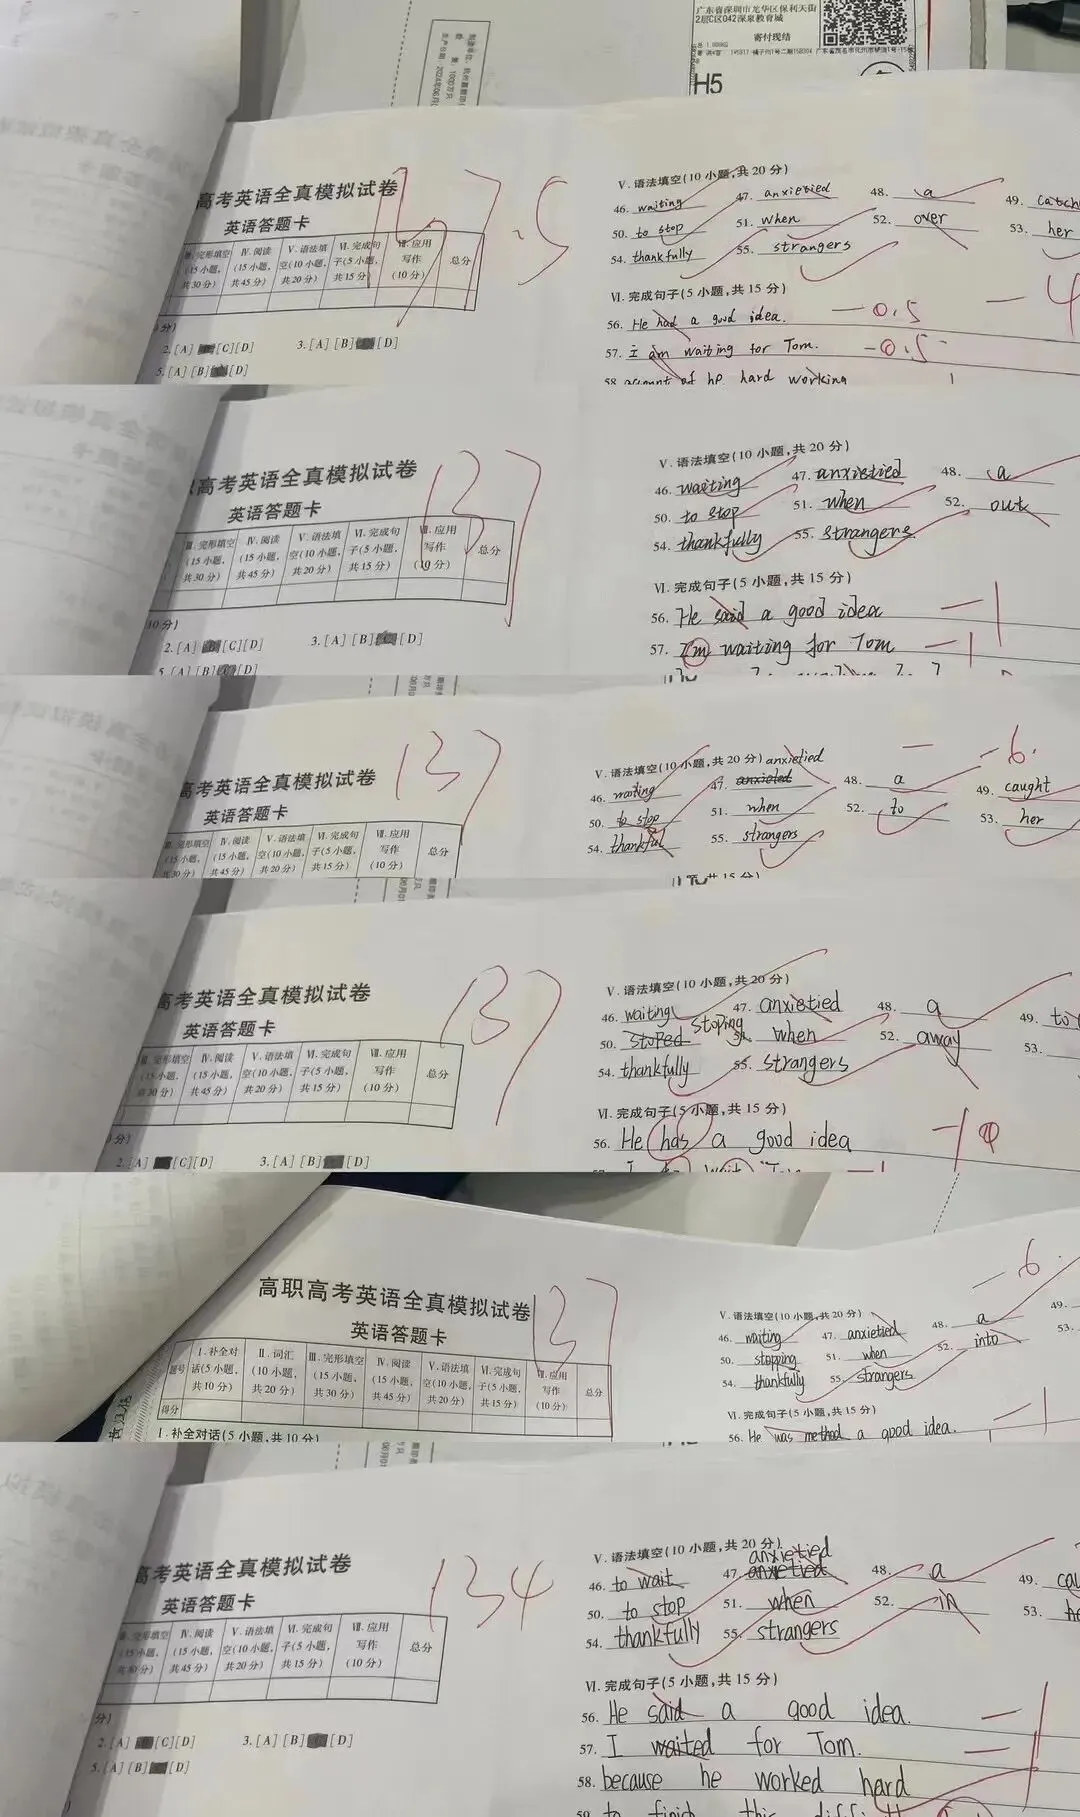 广东省深圳市龙华区保利天街
2层C区042深泉教育城
寄付现结
H5
高考英语全真模拟试卷
英语答题卡
Ⅲ.完形填空 (15小题, 共30分)
Ⅳ.阅读 (15小题, 共45分)
Ⅴ.语法填空(10小题, 共20分)
Ⅵ.完成句子(5小题, 共15分)
Ⅶ.应用写作 (10分)
总分
2.[A] [C][D] 3.[A][B] [D]
5.[A][B] [D]
Ⅴ.语法填空(10小题,共20分)
46. waiting 47. anxietied 48. a 49. catch
50. to stop 51. when 52. over 53. her
54. thankfully 55. strangers
Ⅵ.完成句子(5小题,共15分)
56. He had a good idea. -0.5 -4
57. I am waiting for Tom. -0.5
58. account of he hard working
高考英语全真模拟试卷 137
英语答题卡
Ⅲ.完形填空 (15小题, 共30分)
Ⅳ.阅读 (15小题, 共45分)
Ⅴ.语法填空(10小题, 共20分)
Ⅵ.完成句子(5小题, 共15分)
Ⅶ.应用写作 (10分)
总分
10分)
2.[A] [C][D] 3.[A][B] [D]
5.[A][B] [D]
Ⅴ.语法填空(10小题,共20分)
46. waiting 47. anxietied 48. a
50. to stop 51. when 52. out
54. thankfully 55. strangers
Ⅵ.完成句子(5小题,共15分)
56. He said a good idea -1
57. I'm waiting for Tom -1
高考英语全真模拟试卷 137
英语答题卡
Ⅲ.完形填空 (15小题, 共30分)
Ⅳ.阅读 (15小题, 共45分)
Ⅴ.语法填空(10小题, 共20分)
Ⅵ.完成句子(5小题, 共15分)
Ⅶ.应用写作 (10分)
总分
-6.
Ⅴ.语法填空(10小题,共20分) anxietied
46. waiting 47. 48. a 49. caught
50. to stop 51. when 52. to 53. her
54. thankful 55. strangers
高考英语全真模拟试卷 137
英语答题卡
Ⅲ.完形填空 (15小题, 共30分)
Ⅳ.阅读 (15小题, 共45分)
Ⅴ.语法填空(10小题, 共20分)
Ⅵ.完成句子(5小题, 共15分)
Ⅶ.应用写作 (10分)
总分
分)
2.[A] [C][D] 3.[A][B] [D]
Ⅴ.语法填空(10小题,共20分)
46. waiting 47. anxietied 48. a 49. to
50. stoped stoping 51. when 52. away 53.
54. thankfully 55. strangers
Ⅵ.完成句子(5小题,共15分)
56. He has a good idea -1
高职高考英语全真模拟试卷 137
英语答题卡
题号
Ⅰ.补全对话(5小题, 共10分)
Ⅱ.词汇 (10小题, 共20分)
Ⅲ.完形填空 (15小题, 共30分)
Ⅳ.阅读 (15小题, 共45分)
Ⅴ.语法填空(10小题, 共20分)
Ⅵ.完成句子(5小题, 共15分)
Ⅶ.应用写作 (10分)
总分
得分
Ⅰ.补全对话(5小题,共10分)
-6.
Ⅴ.语法填空(10小题,共20分)
46. waiting 47. anxietied 48. a 49.
50. stopping 51. when 52. into 53.
54. thankfully 55. strangers
Ⅵ.完成句子(5小题,共15分)
56. He was method a good idea. -1
高考英语全真模拟试卷 134
英语答题卡
Ⅲ.完形填空 (15小题, 共30分)
Ⅳ.阅读 (15小题, 共45分)
Ⅴ.语法填空(10小题, 共20分)
Ⅵ.完成句子(5小题, 共15分)
Ⅶ.应用写作 (10分)
总分
分)
2.[A] [C][D] 3.[A][B] [D]
5.[A][B] [D]
Ⅴ.语法填空(10小题,共20分)
anxietied
46. to wait 47. anxietied 48. a 49. cau
50. to stop 51. when 52. in 53. he
54. thankfully 55. strangers
Ⅵ.完成句子(5小题,共15分)
56. He said a good idea. -1
57. I waited for Tom. -1
58. because he worked hard
59. to finish this